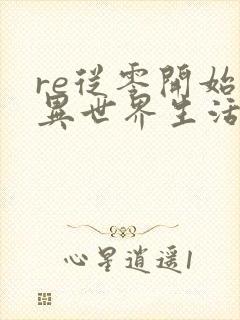 re従零開始
異世界生活
心星逍遥1